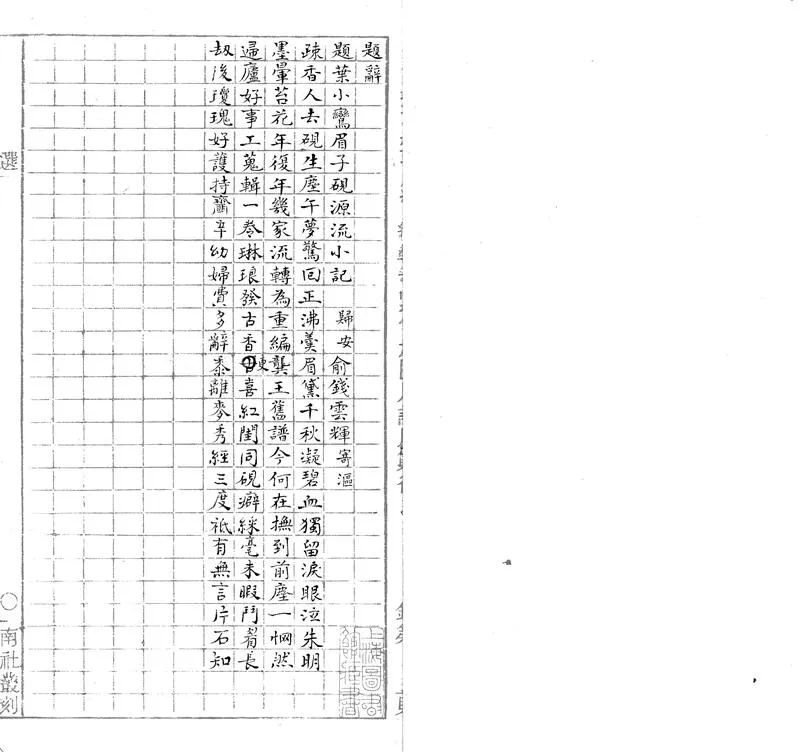 題辭
題葉小鸞眉子硯源流小記　歸安俞錢雲輝寄漚
疎香人去硯生塵午夢驚回正沸羹眉黛千秋凝碧血獨留淚眼泣朱明
墨暈苔花年復年幾家流轉為重編龔王舊譜今何在撫到前塵一惘然
逼廬好事工蒐輯一卷琳琅發古香更喜紅閨同硯癖綵毫未暇鬥眉長
劫後瓊瑰好護持齏辛幼婦費多辭黍離麥秀經三度祇有無言片石知
上海圖書館藏書
選
○一
南社叢刻